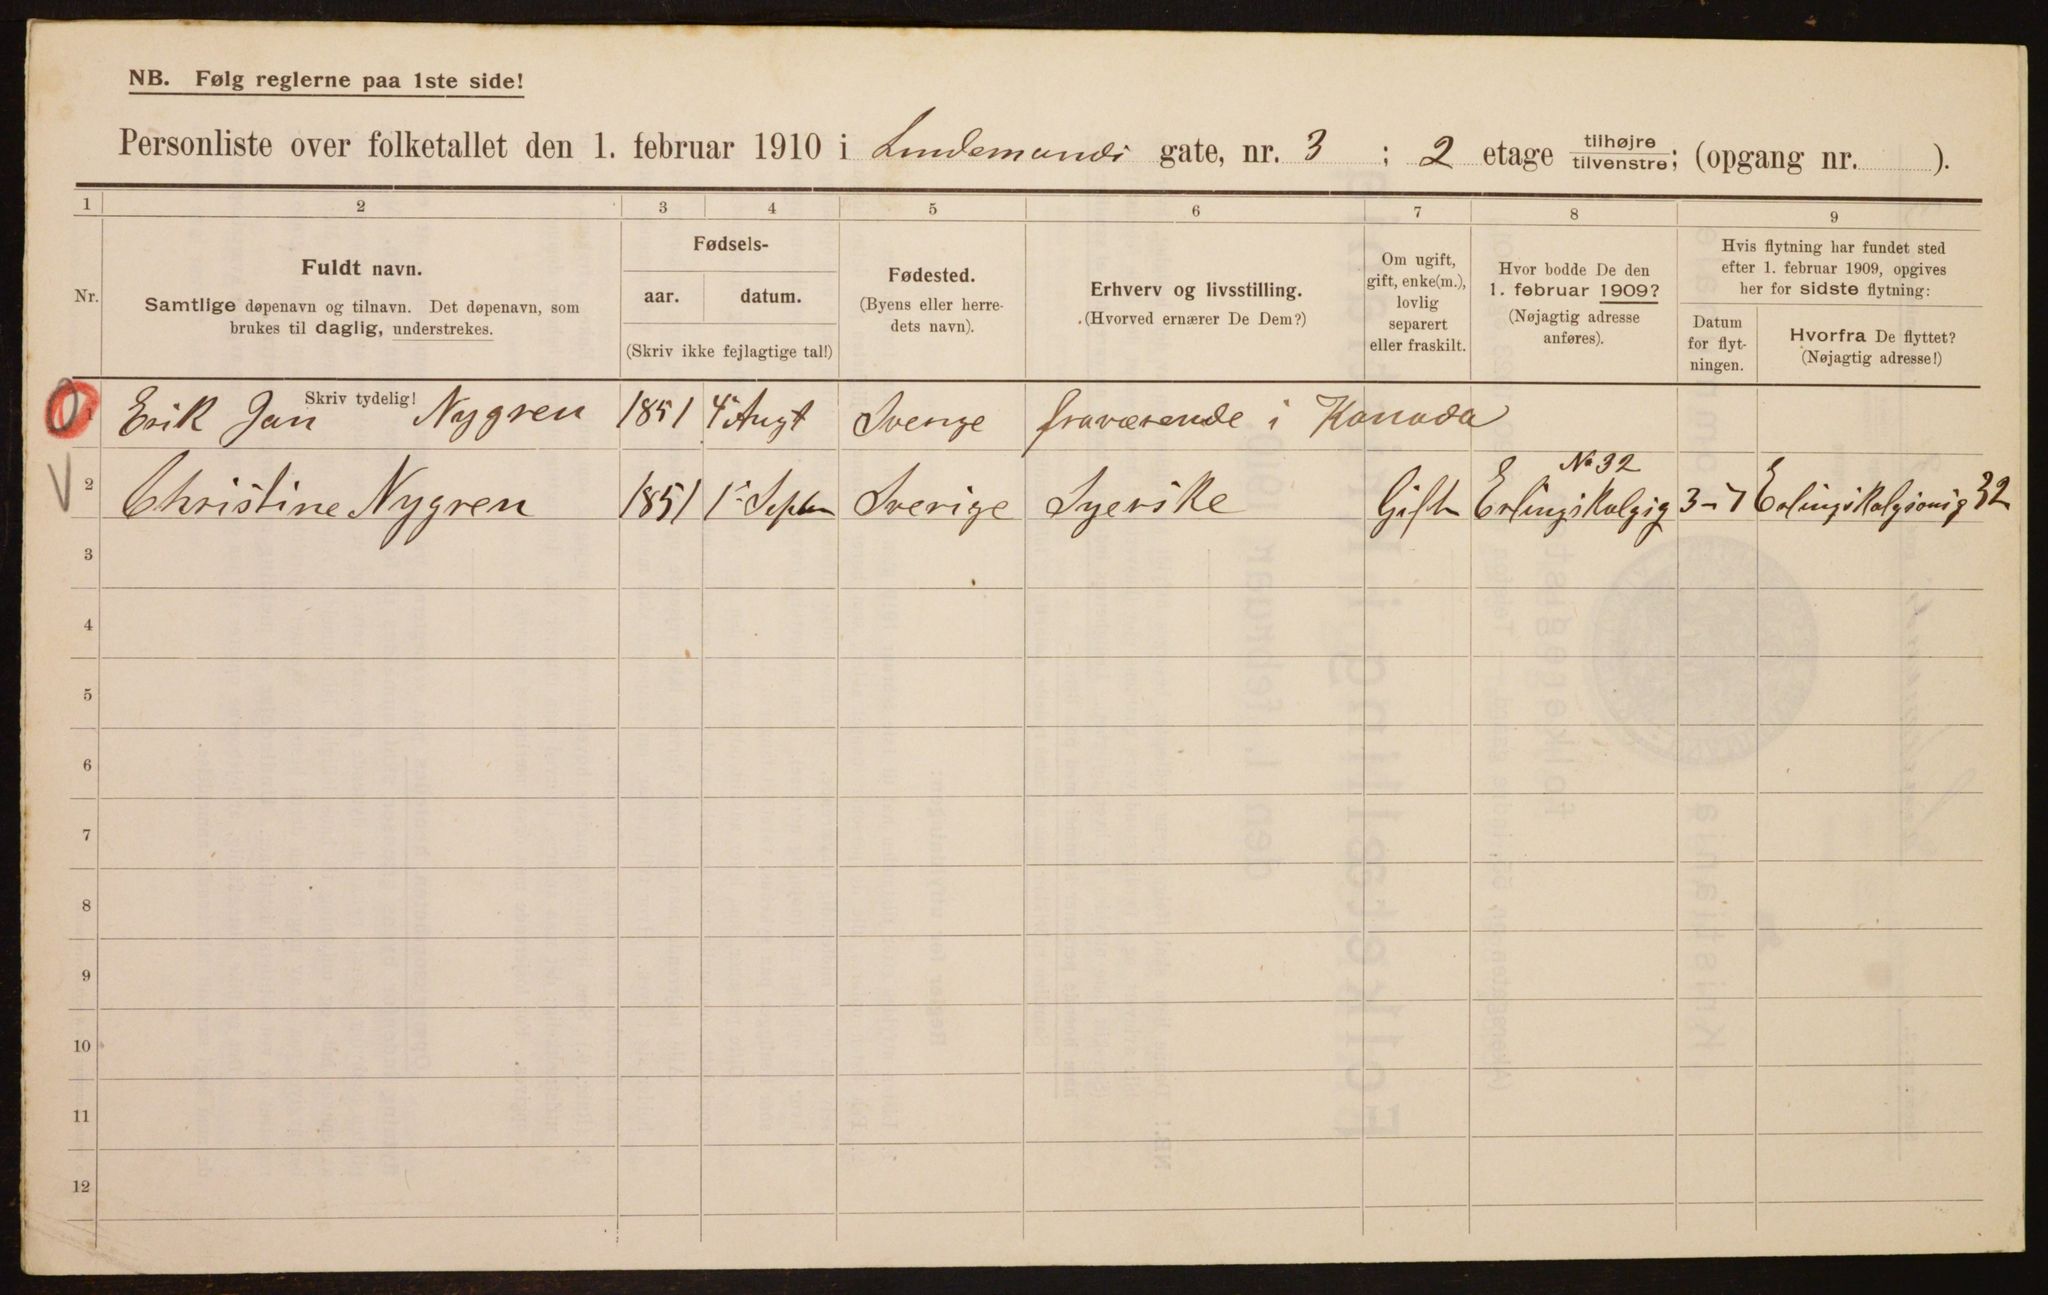 NB. Følg reglerne paa 1ste side!
Personliste over folketallet den 1. februar 1910 i Lindemands gate, nr. 3 ; 2 etage tilhøjre tilvenstre; (opgang nr. ).
1 2 3 4 5 6 7 8 9
Nr.
Fuldt navn.
Samtlige døpenavn og tilnavn. Det døpenavn, som
brukes til daglig, understrekes.
Skriv tydelig!
Fødsels-
aar. datum.
(Skriv ikke fejlagtige tal!)
Fødested.
(Byens eller herre-
dets navn).
Erhverv og livsstilling.
(Hvorved ernærer De Dem?)
Om ugift,
gift, enke(m.),
lovlig
separert
eller fraskilt.
Hvor bodde De den
1. februar 1909?
(Nøjagtig adresse
anføres).
Hvis flytning har fundet sted
efter 1. februar 1909, opgives
her for sidste flytning:
Datum
for flyt-
ningen.
Hvorfra De flyttet?
(Nøjagtig adresse!)
1 Erik Jan Nygren 1851 4 Augt Sverige fraværende i Kanada
No 32
2 Christine Nygren 1851 1 Septem Sverige Syerske Gift Erlingskalgsg 3-7 Erlingskalgsonsg 32
3
4
5
6
7
8
9
10
11
12